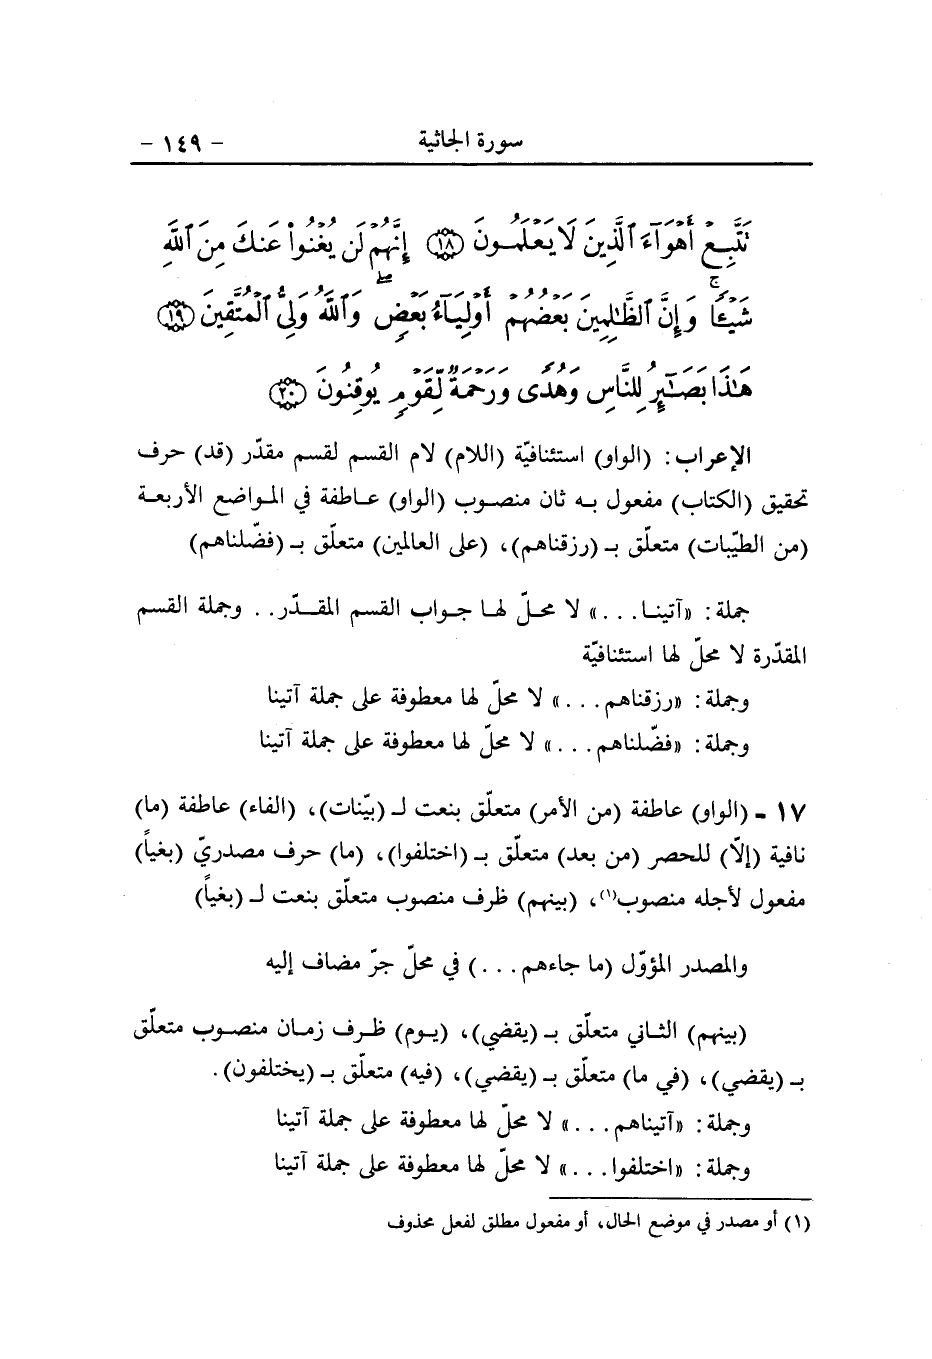 سورة الجاثية - ١٤٩ -
تَتَّبِعْ أَهْوَآءَ ٱلَّذِينَ لَا يَعْلَمُونَ ﴿١٨﴾ إِنَّهُمْ لَن يُغْنُوا۟ عَنكَ مِنَ ٱللَّهِ
شَيْـًٔا ۚ وَإِنَّ ٱلظَّٰلِمِينَ بَعْضُهُمْ أَوْلِيَآءُ بَعْضٍ ۖ وَٱللَّهُ وَلِىُّ ٱلْمُتَّقِينَ ﴿١٩﴾
هَٰذَا بَصَٰٓئِرُ لِلنَّاسِ وَهُدًى وَرَحْمَةٌ لِّقَوْمٍ يُوقِنُونَ ﴿٢٠﴾
الإعراب: (الواو) استئنافيّة (اللام) لام القسم لقسم مقدّر (قد) حرف
تحقيق (الكتاب) مفعول به ثان منصوب (الواو) عاطفة في المواضع الأربعة
(من الطيّبات) متعلّق بـ (رزقناهم)، (على العالمين) متعلّق بـ (فضّلناهم)
جملة: «آتينا...» لا محلّ لها جواب القسم المقدّر.. وجملة القسم
المقدّرة لا محلّ لها استئنافيّة
وجملة: «رزقناهم...» لا محلّ لها معطوفة على جملة آتينا
وجملة: «فضّلناهم...» لا محلّ لها معطوفة على جملة آتينا
١٧ - (الواو) عاطفة (من الأمر) متعلّق بنعت لـ (بيّنات)، (الفاء) عاطفة (ما)
نافية (إلّا) للحصر (من بعد) متعلّق بـ (اختلفوا)، (ما) حرف مصدريّ (بغياً)
مفعول لأجله منصوب(١)، (بينهم) ظرف منصوب متعلّق بنعت لـ (بغياً)
والمصدر المؤوّل (ما جاءهم...) في محلّ جرّ مضاف إليه
(بينهم) الثاني متعلّق بـ (يقضي)، (يوم) ظرف زمان منصوب متعلّق
بـ (يقضي)، (في ما) متعلّق بـ (يقضي)، (فيه) متعلّق بـ (يختلفون).
وجملة: «آتيناهم...» لا محلّ لها معطوفة على جملة آتينا
وجملة: «اختلفوا...» لا محلّ لها معطوفة على جملة آتينا
(١) أو مصدر في موضع الحال، أو مفعول مطلق لفعل محذوف